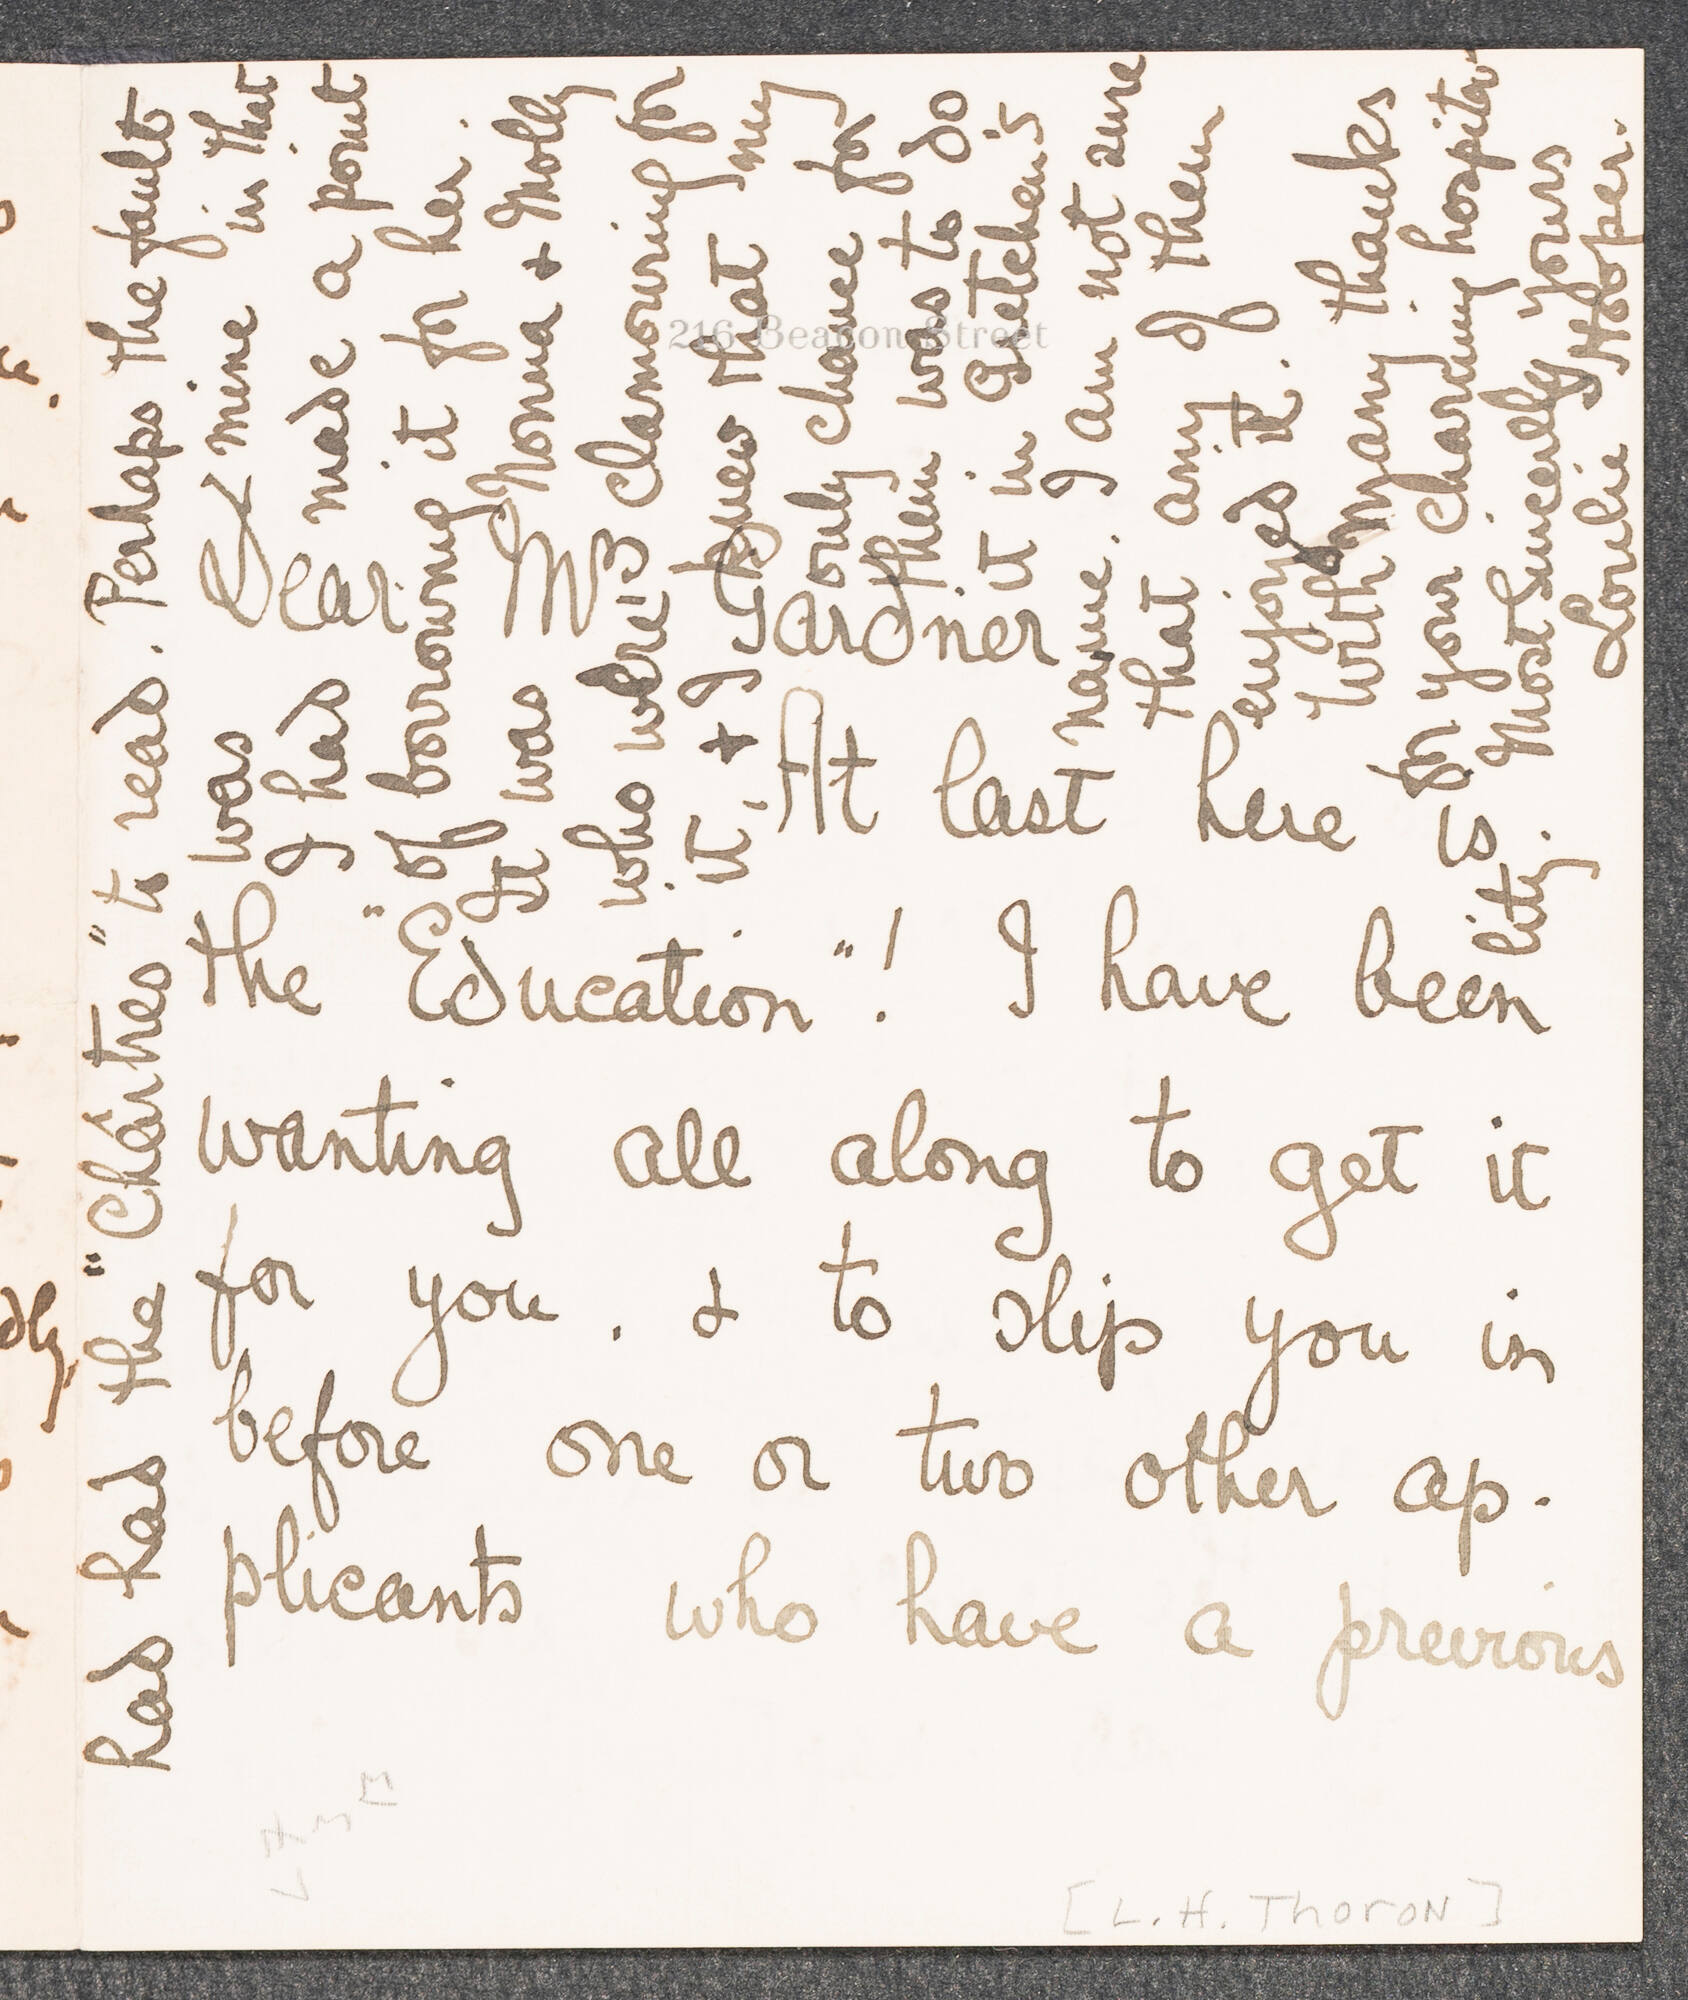 216 Beacon Street
Dear Mrs Gardner
At last here is
the "Education"! I have been
wanting all along to get it
for you. & to slip you in
before one or two other ap-
plicants who have a previous
had had the "Chartres" to read. Perhaps the fault
was mine in that
I had made a point
of borrowing it for her.
It was Nonna & Molly
who were clamouring for
it, & I knew that my
only chance for
them was to do
it in Gretchen's
name. I am not sure
that any of them
enjoyed it.
With many thanks
for your charming hospita
lity.
Most Sincerely yours
Louie Hooper.
[L. H. Thoron]